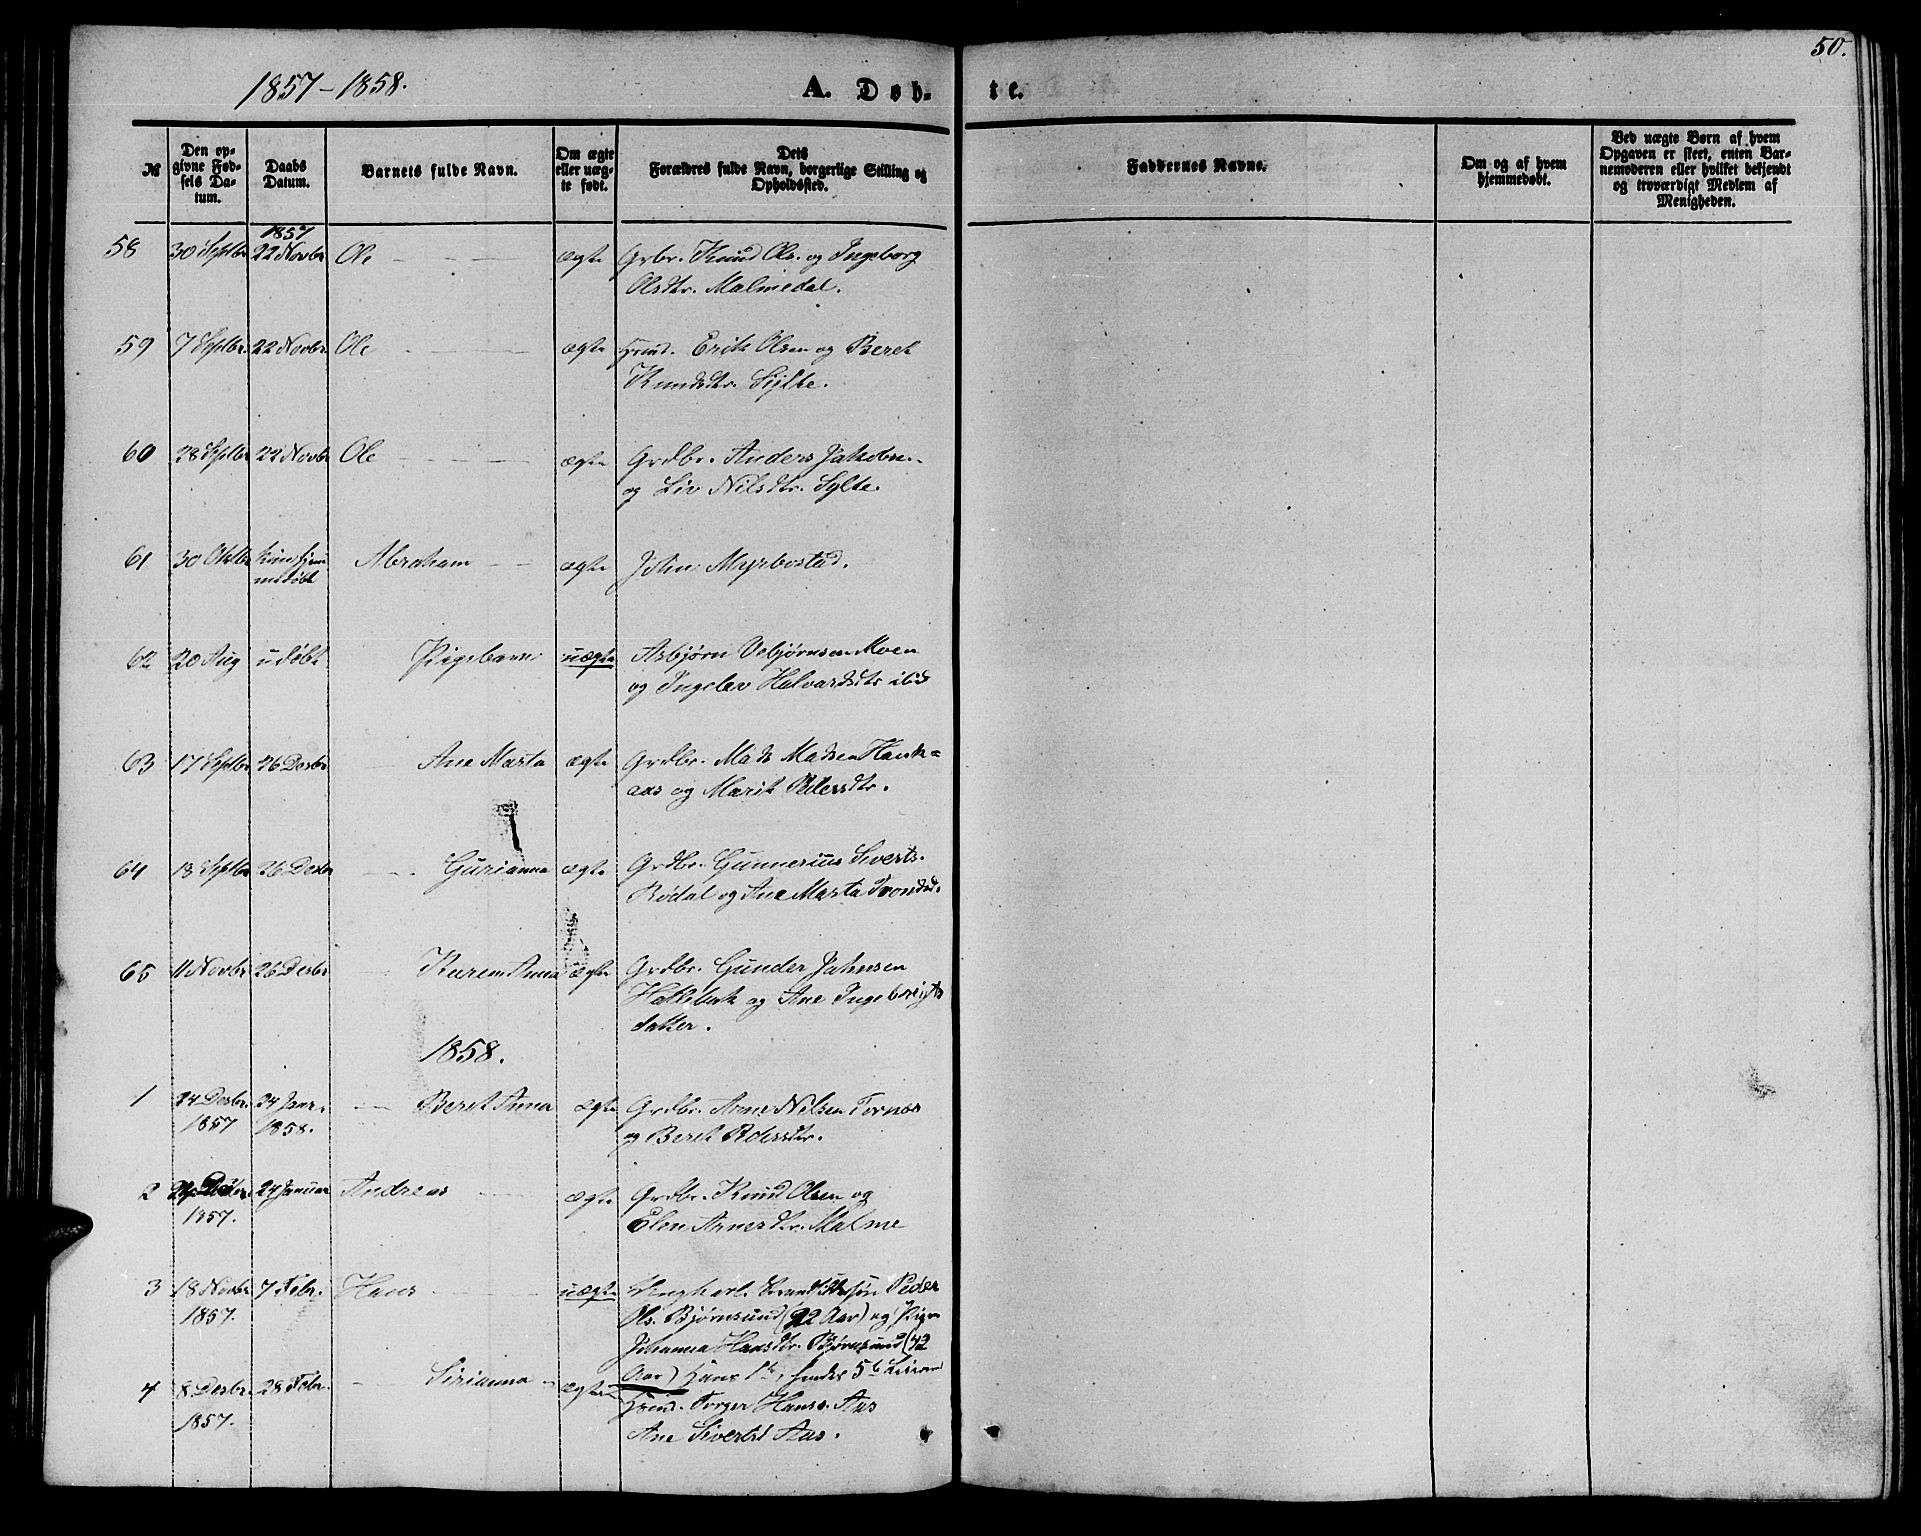 1857-1858.
A. Døb-
te.
50.
№
Den opgivne Fødsels Datum.
Daabs Datum.
Barnets fulde Navn.
Om ægte eller uægte født.
Dets Forældres fulde Navn, borgerlige Stilling og Opholdssted.
Faddernes Navne.
Om og af hvem hjemmedøbt.
Ved uægte Børn af hvem Opgaven er skeet, enten Barnemoderen eller hvilket bekjendt og troværdigt Medlem af Menigheden.
1857
58 30 Septbr 22 Novbr Ole ægte Grbr. Knud Ols. og Ingeborg
Olsdtr. Malmedal.
59 7 Septbr. 22 Novbr. Ole ægte Hmd. Erik Olsen og Beret
Knudsdtr. Sylte.
60 28 Septbr 22 Novbr Ole ægte Grdbr. Anders Jakobsn.
og Liv Nilsdtr. Sylte.
61 30 Oktbr kun hjem
medøbt Abraham ægte John Myrbostad.
62 20 Aug udøbt Pigebarn uægte Asbjørn Vebjørnsen Moen
og Ingelev Halvardsdtr ibid
63 17 Septbr 26 Desbr Ane Marta ægte Grdbr. Mads Madsen Hauk=
aas og Marit Pedersdtr.
64 13 Septbr 26 Desbr Gurianna ægte Grdbr. Gunnerius Siverts.
Rødal og Ane Marta Trondsd.
65 11 Novbr 26 Desbr Karen Anna ægte Grdbr. Gunder Johnsen
og Ane Ingebrigts
datter.
1858.
1 24 Desbr. 24 Janr. Beret Anna ægte Grdbr. Arne Nilsen Tornæs
1857 1858. og Beret Pedersdtr.
2 Desbr. 24 Januar Andreas ægte Grdbr. Knud Olsen og
1857. Elen Arnesdtr. Malme
3 18 Novbr 7 Febr. Hans uægte Ungkarl Peder
1857. Ols. Bjørnsund (22 Aar) og Pige
Johanna Hansdtr. Bjørnsund (42
Aar) Hans 1te, hendes 5te
4 8 Desbr. 28 Febr. Sirianna ægte Hmd. Torger Hanss. Aas
1857. Ane Sivertsd Aas.